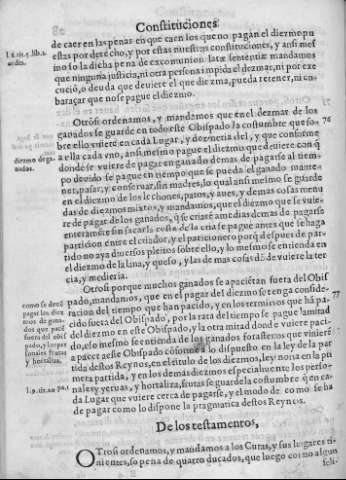 Constituciones
de caer en las penas en que caen los que no pagan el diezmo pu
estas por derecho, y por estas nuestras constituciones, y ansi mes
mo so la dicha pena de excomunion latæ sententiæ mandamos
que ninguna justicia, ni otra persona impida el dezmar, ni por exe
cució, o deuda que deviere el que diezma, pueda retener, ni em
baraçar que no se pague el diezmo.
Otrosi ordenamos, y mandamos que en el dezmar de los
ganados se guarde en todo este Obispado la costumbre que so-
bre ello uviere en cada Lugar, y dezmeria del, y que conforme
a ella cada vno, ansi mesmo pague el diezmo que deviere con q̃
donde se uviere de pagar en ganado demas de pagarse al tiem-
po devido se pague en tiempo que se pueda el ganado mante-
ner, pasar, y conservar, sin madres, lo qual ansi mesmo se guarde
en el diezmo de los lechones, patos, y aues, y demas cosas menu
das de diezmos mixtos, y mandamos, que el diezmo que se uvie-
re de pagar de los ganados, q̃ se criarẽ a medias demas de pagarse
enteramẽte sin sacar la costa de la cria se pague antes que se haga
particion entre el criador, y el parcionero por q̃ despues de par-
tido no aya diversos pleitos sobre ello, y lo mesmo se entienda en
el diezmo de la lina, y queso, y las de mas cosas dõ de uviere la ter
cia, y mediería.
Otrosi porque muchos ganados se apaciẽtan fuera del Obis
pado, mandamos, que en el pagar del diezmo se tenga conside-
racion del tiempo que han pacido, y en los terminos que há pa-
cido fuera del Obispado, por la rata del tiempo se pague la mitad
del diezmo en este Obispado, y la otra mitad donde uviere paci-
do, eso mesmo se entienda de los ganados forasteros que viniere
a pacer a este Obispado cõforme a lo dispuesto en la ley de la par
tida destos Reynos, en el titulo de los diezmos, ley nona en la pri
mera partida, y en los demás diezmos especialmente los perso-
nales y yeruas, y hortaliza, frutas se guarde la costumbre q̃ en ca-
da Lugar que uviere cerca de pagarse, y el modo de como se ha
de pagar como lo dispone la pragmatica destos Reynos.
De los testamentos,
OTrosi ordenamos, y mandamos a los Curas, y sus lugares ti-
nientes, so pena de quatro ducados, que luego como algun
76
77
diezmo de ga-
nados.
como se deve
pagar los diez
mos de gana-
dos que pacẽ
fuera del obis
pado, y los per
sonales frutas
y hortaliza.